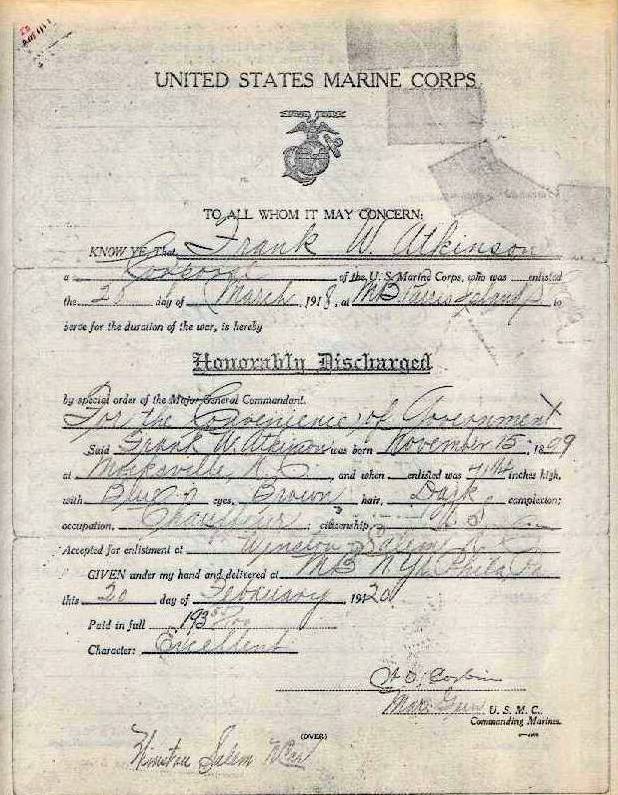 UNITED STATES MARINE CORPS
TO ALL WHOM IT MAY CONCERN:
KNOW YE, That Frank W Atkinson
a Corporal of the U. S. Marine Corps, who was enlisted
the 28 day of March, 1918, at MB Parris Island to
serve for the duration of the war, is hereby
Honorably Discharged
by special order of the Major General Commandant.
For the Convenience of Government
Said Frank W. Atkinson was born November 15, 1899
at Mocksville, N.C., and when enlisted was 71 inches high,
with Blue eyes, Brown hair, Dark complexion;
occupation, Chauffeur; citizenship, U S
Accepted for enlistment at Winston Salem N
GIVEN under my hand and delivered at MB N Yd Phila Pa
this 20 day of February 1920
Paid in full 193
Character: Excellent
U. S. M. C.
Commanding Marines.
(OVER)
Winston Salem